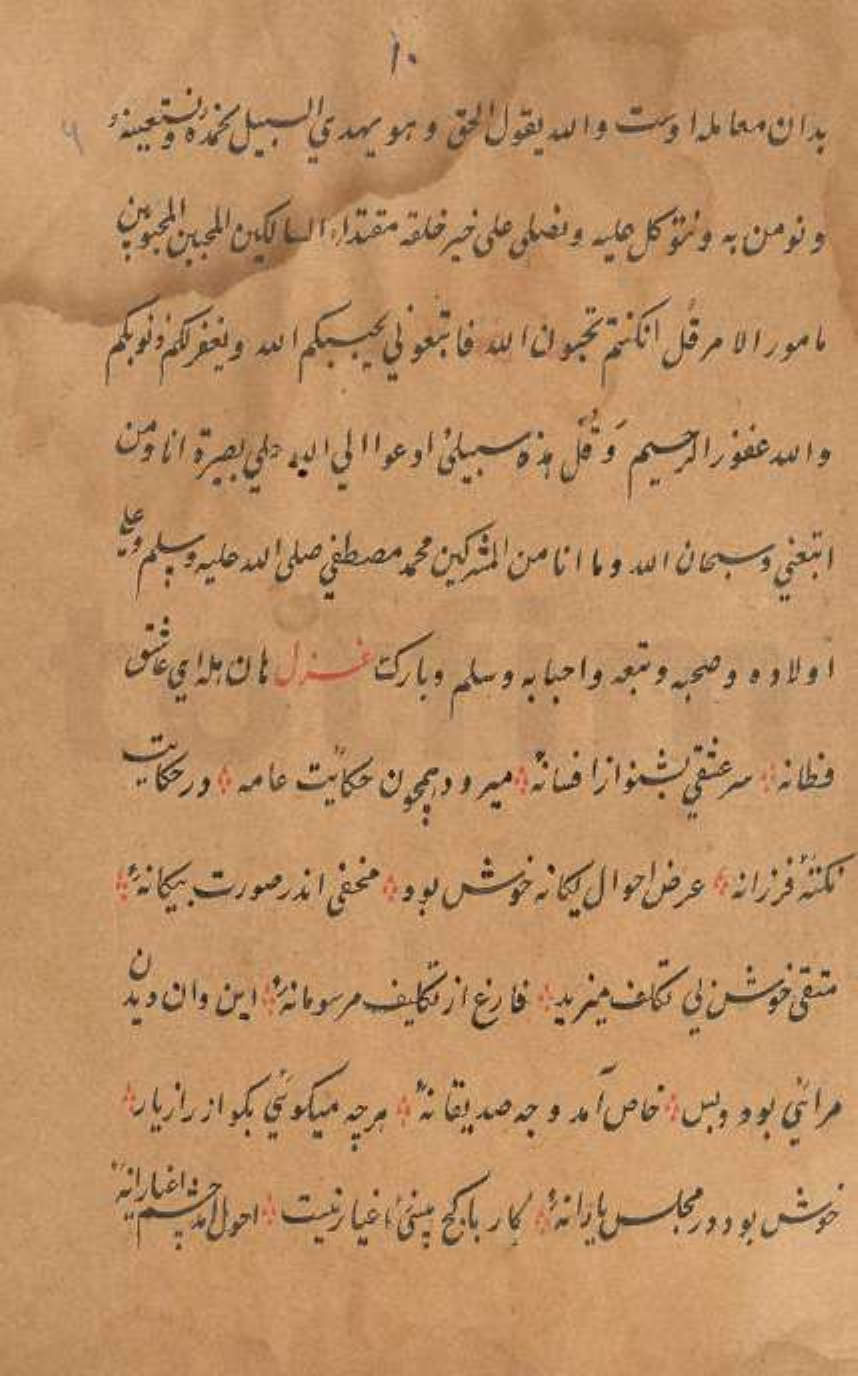 ۱۰
بدان معامله اوست والله يقول الحق و هو يهدي السبيل نحمده و نستعينه
و نومن به و نتوكل عليه و نصلى على خير خلقه مقتداء السالكين المحبين المحبوبين
مامور الامر قل انكنتم تحبون الله فاتبعوني يحببكم الله ويغفرلكم ذنوبكم
والله غفور الرحيم وَ قُل هذه سبيلى ادعوا الي الله علي بصيرة انا و من
اتبعني و سبحان الله وما انا من المشركين محمد مصطفي صلى الله عليه وسلم و علي
اولاده و صحبه و تبعه و احبابه وسلم وبارك غزل هان هله اي عاشق
فطانه سر عشقي بشنو از افسانهٔ ميرود همچون حكايت عامه در حكايت
نكتهٔ فرزانه عرض احوال يگانه خوش بود مخفى اندر صورت بيگانهٔ
متقى خوش بي تكلف ميزيد فارغ از تكليف مرسومانهٔ اين وان ديدن
مرائي بود و بس خاص آمد وجه صديقانهٔ هرچه ميكوئي بكو از راز يار
خوش بود در مجلس يارانهٔ كار با كج بيني اغيار نيست احول آمد چشم اغيارانهٔ